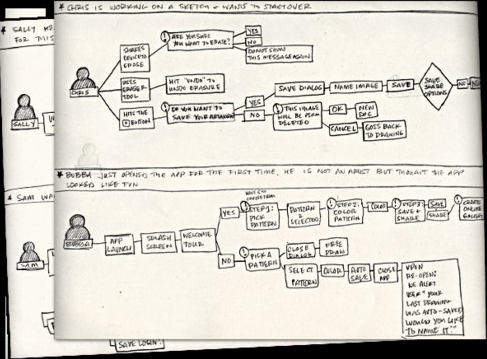 * CHRIS IS WORKING ON A SKETCH & WANTS TO STARTOVER
* SALLY
FOR THIS
ARE YOU SURE
YOU WANT TO ERASE?
YES
NO
DO NOT SHOW
THIS MESSAGE AGAIN
SHAKES
DEVICE TO
ERASE
CHRIS
USES
ERASER
TOOL
HIT "UNDO" TO
UNDO ERASURE
HITS THE
BUTTON
DO YOU WANT TO
SAVE YOUR ARTWORK
YES
NO
SAVE DIALOG
NAME IMAGE
SAVE
SAVE
SHARE
OPTIONS
THIS IMAGE
WILL BE
DELETED
OK
NEW
DOC
CANCEL
GOES BACK
TO DRAWING
SALLY
* BUBBA JUST OPENED THE APP FOR THE FIRST TIME, HE IS NOT AN ARTIST BUT THOUGHT THE APP
LOOKED LIKE FUN
* SAM
BUBBA
APP
LAUNCH
SPLASH
SCREEN
WELCOME
TOUR
YES
STEP 1:
PICK
PATTERN
PATTERN
SELECTED
STEP 2:
COLOR
PATTERN
COLOR
STEP 3:
SAVE &
SHARE
SAVE
SHARE
CREATE
ONLINE
GALLERY
NO
PICK A
PATTERN
CLOSE
DIALOG
FREE
DRAW
SELECT
PATTERN
COLOR
AUTO
SAVE
CLOSE
APP
UPON
RE-OPEN:
WE ALERT
USER "YOUR
LAST DRAWING
WAS AUTO-SAVED
WOULD YOU LIKE
TO NAME IT."
SAM
SAVE LOGIN